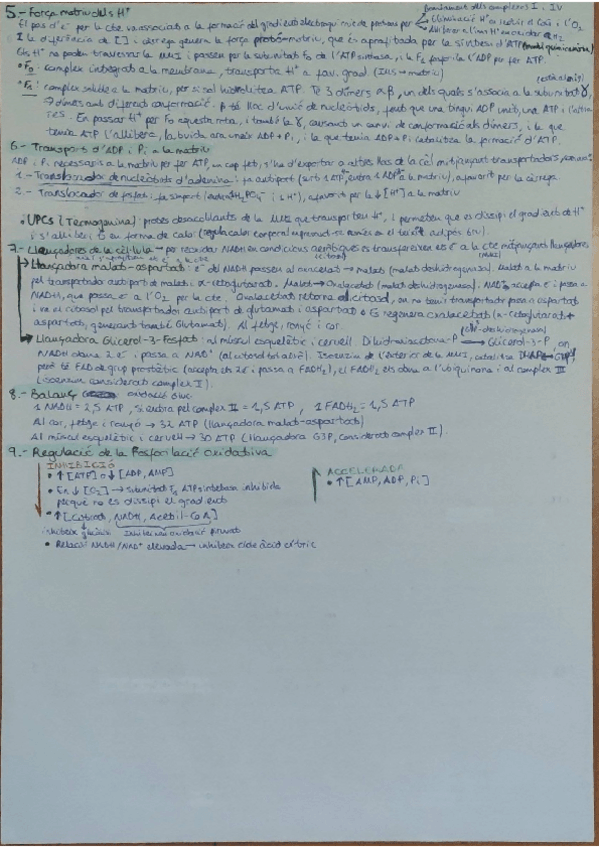 5.- Força motriu dels H⁺
El pas d'e⁻ per la cte va associat a la formació del gradient electroquímic de protons per
bombament dels complexos I i IV
Eliminació H⁺ en reacció el Cox i l'O₂
I la diferència de [ ] i càrrega genera la força protó-motriu, que és aprofitada per la síntesi d'ATP (model quimiosmòtic)
Els H⁺ no poden travessar la MMI i passen per la subunitat F₀ de l'ATP sintasa, i la F₁ fosforila l'ADP per fer ATP.
• F₀: complex integrat a la membrana, transporta H⁺ a fav. grad (IMS→matriu)
• F₁: complex soluble a la matriu, per si sol hidrolitza ATP. Té 3 dímers αβ, un dels quals s'associa a la subunitat γ,
3 dímers amb diferent conformació. β té lloc d'unió de nucleòtids, fent que una tingui ADP unit, una ATP i l'altra
res. En passar H⁺ per F₀ aquesta rota, i també la γ, causant un canvi de conformació als dímers, i la que
tenia ATP l'allibera, la buida ara uneix ADP+Pi, i la que tenia ADP+Pi catalitza la formació d'ATP.
6.- Transport d'ADP i Pi a la matriu
ADP i Pi necessaris a la matriu per fer ATP, un cop fet, s'ha d'exportar a altres llocs de la cèl mitjançant transportadors
1.- Translocador de nucleòtids d'adenina: fa antiport (surt 1 ATP⁴⁻, entra 1 ADP³⁻ a la matriu), afavorit per la càrrega
2.- Translocador de fosfat: fa simport (entren H₂PO₄⁻ i 1 H⁺), afavorit per la ↓[H⁺] a la matriu
• UPCs (Termogenina): proteïnes desacoblants de la MMI que transporten H⁺, i permeten que es dissipi el gradient de H⁺
i s'alliberi E en forma de calor (regula calor corporal
7.- Llançadores de la cèl·lula → per reciclar NADH en condicions aeròbiques es transfereixen es e⁻ a la cte mitjançant llançadores
Llançadora malat-aspartat: e⁻ del NADH passen al oxalacetat → malat (malat deshidrogenasa). Malat a la matriu
pel transportador antiport de malat i α-cetoglutarat. Malat → Oxalacetat (malat deshidrogenasa). NAD⁺ accepta e⁻ i passa a
NADH, que passa e⁻ a l'O₂ per la cte. Oxalacetat retorna al citosol, on no tenim transportador passa a aspartat
i va al citosol pel transportador antiport de glutamat i aspartat → Es regenera oxalacetat (α-cetoglutarat +
aspartat, generant també Glutamat). Al fetge, ronyó i cor.
Llançadora Glicerol-3-Fosfat: al múscul esquelètic i cervell. Dihidroxiacetona-P → Glicerol-3-P, on
NADH dona 2 e⁻ i passa a NAD⁺ (al citosol tot això). Isoenzim de l'exterior de la MMI, catalitza
però té FAD de grup prostètic (accepta els 2e⁻ i passa a FADH₂), el FADH₂ els dona a l'ubiquinona i al complex III
(isoenzim considerat complex II).
8.- Balanç oxidació gluc.
1 NADH = 2,5 ATP, si entra pel complex II = 1,5 ATP, 1 FADH₂ = 1,5 ATP
Al cor, fetge i ronyó → 32 ATP (llançadora malat-aspartat)
Al múscul esquelètic i cervell → 30 ATP (llançadora G3P, considerat complex II).
9.- Regulació de la Fosforilació oxidativa
INHIBICIÓ
• ↑[ATP] o ↓[ADP, AMP]
• En ↓[O₂] → subunitat F₁ ATP sintasa inhibida
perquè no es dissipi el gradient
• ↑[Citrat, NADH, Acetil-CoA]
inhibeix glicòlisi
Inhibeixen oxidació piruvat
• Relació NADH/NAD⁺ elevada → inhibeix cicle àcid cítric
ACCELERADA
• ↑[AMP, ADP, Pi]